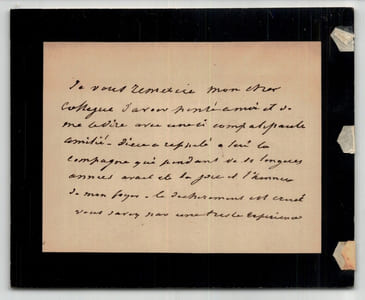 Je vous remercie mon cher
Collegue d'avoir pensé a moi et de
me le dire avec une si compatissante
amitié - Dieu a rappelé a lui la
compagne qui pendant de si longues
années avait été la joie et l'honneur
de mon foyer - le dechirement est cruel
vous savez par une triste Experience